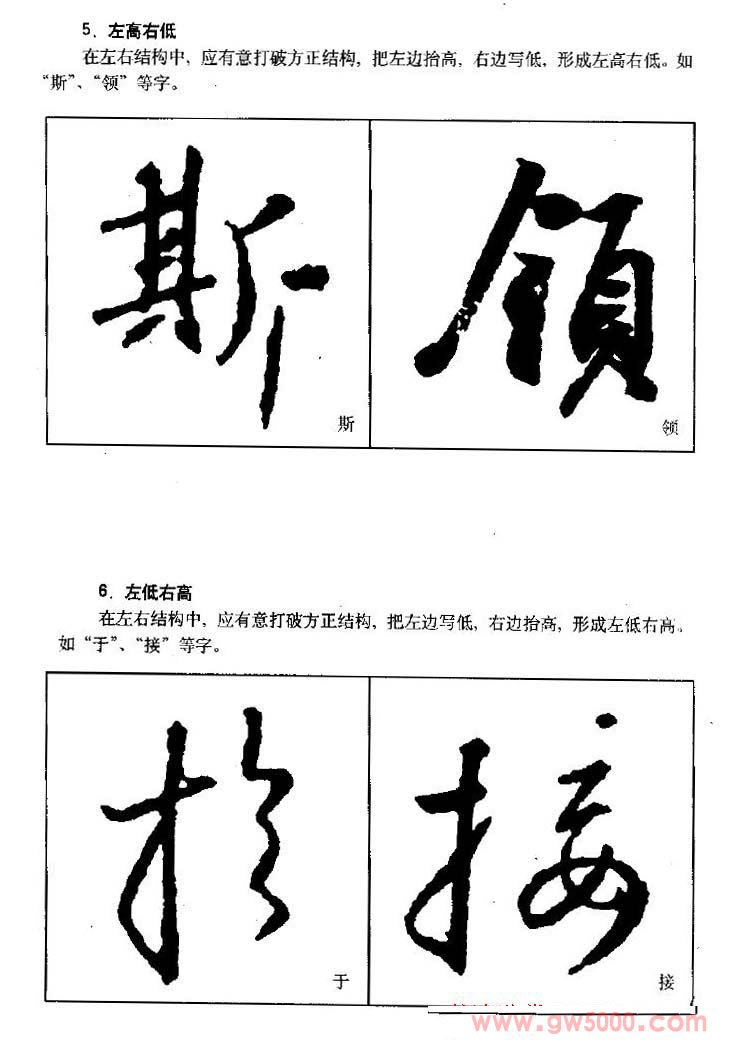 5．左高右低
在左右结构中，应有意打破方正结构，把左边抬高，右边写低，形成左高右低。如
“斯”、“领”等字。
斯 領
斯 领
6．左低右高
在左右结构中，应有意打破方正结构，把左边写低，右边抬高，形成左低右高。
如“于”、“接”等字。
於 接
于 接
www.gw5000.com